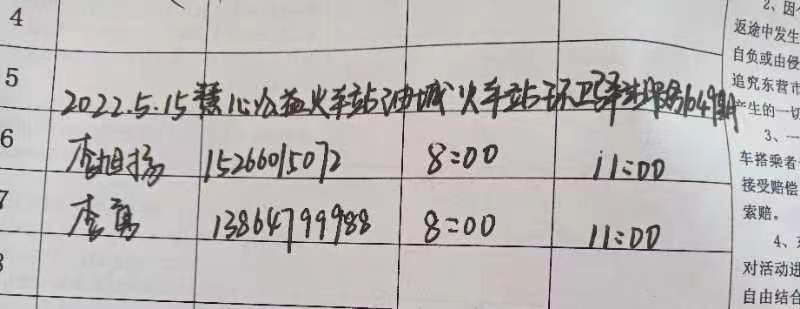 4
5 2022.5.15慧心公益火车站油城火车站环卫驿站服务
6 李旭扬 15266015072 8:00 11:00
7 李 13864799988 8:00 11:00
2、因
返途中发生
自负或由侵
追究东营市
产生的一切
3、一
车搭乘者
接受赔偿
索赔。
4、
对活动进
自由结合